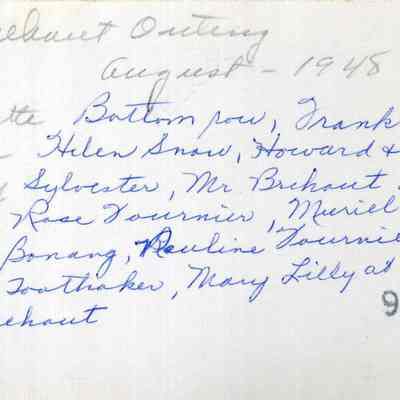 ehaut Outing
August - 1948
tte Bottom row, Frank
Helen Snow, Howard &
Sylvester, Mr Brehaut
Rose Tournier, Muriel
Bonang, Pauline Tournie
Toothaker, Mary Lilly at
ehaut
9